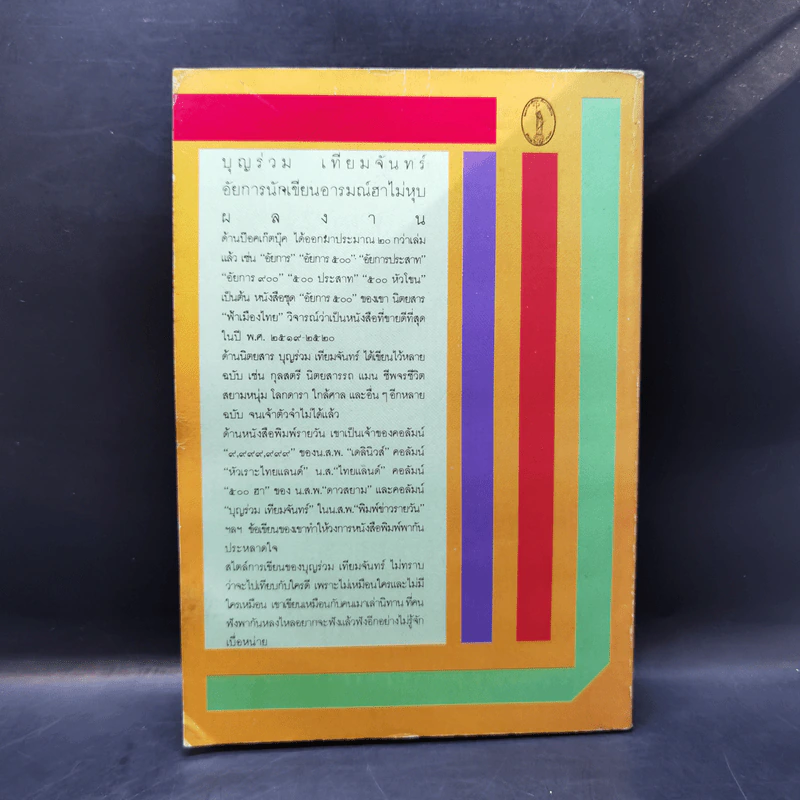 บุญร่วม เทียมจันทร์
อัยการนักเขียนอารมณ์ฮาไม่หุบ
ผลงาน
ด้านป๊อคเก๊ตบุ๊ค ได้ออกมาประมาณ ๒๐ กว่าเล่ม
แล้ว เช่น "อัยการ" "อัยการ ๕๐๐" "อัยการประสาท"
"อัยการ ๙๐๐" "๕๐๐ ประสาท" "๕๐๐ หัวโขน"
เป็นต้น หนังสือชุด "อัยการ ๕๐๐" ของเขา นิตยสาร
"ฟ้าเมืองไทย" วิจารณ์ว่าเป็นหนังสือที่ขายดีที่สุด
ในปี พ.ศ. ๒๕๑๙-๒๕๒๐
ด้านนิตยสาร บุญร่วม เทียมจันทร์ ได้เขียนไว้หลาย
ฉบับ เช่น กุลสตรี นิตยสารรถ แมน ชีพจรชีวิต
สยามหนุ่ม โลกดารา ใกล้ศาล และอื่น ๆ อีกหลาย
ฉบับ จนเจ้าตัวจำไม่ได้แล้ว
ด้านหนังสือพิมพ์รายวัน เขาเป็นเจ้าของคอลัมน์
"๙,๙๙๙,๙๙๙" ของน.ส.พ. "เดลินิวส์" คอลัมน์
"หัวเราะไทยแลนด์" น.ส."ไทยแล็นด์" คอลัมน์
"๕๐๐ ฮา" ของ น.ส.พ."ดาวสยาม" และคอลัมน์
"บุญร่วม เทียมจันทร์" ในน.ส.พ."พิมพ์ข่าวรายวัน"
ฯลฯ ข้อเขียนของเขาทำให้วงการหนังสือพิมพ์พากัน
ประหลาดใจ
สไตล์การเขียนของบุญร่วม เทียมจันทร์ ไม่ทราบ
ว่าจะไปเทียบกับใครดี เพราะไม่เหมือนใครและไม่มี
ใครเหมือน เขาเขียนเหมือนกับคนเมาเล่านิทาน ที่คน
ฟังพากันหลงใหลอยากจะฟังแล้วฟังอีกอย่างไม่รู้จัก
เบื่อหน่าย